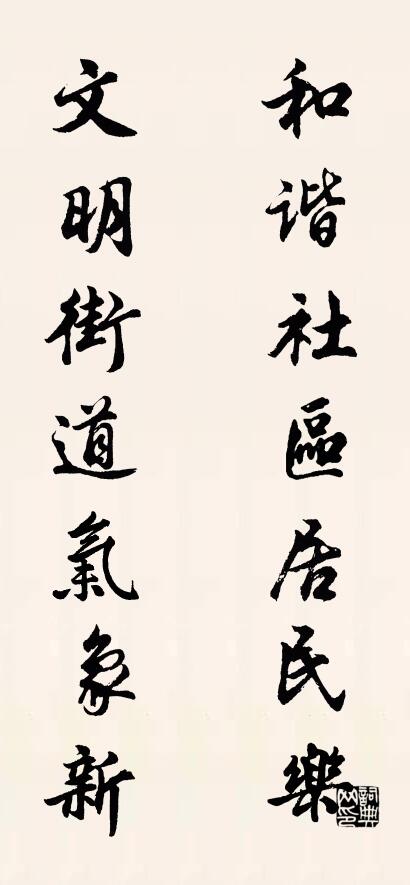 和諧社區居民樂
文明街道氣象新
詞典
网印